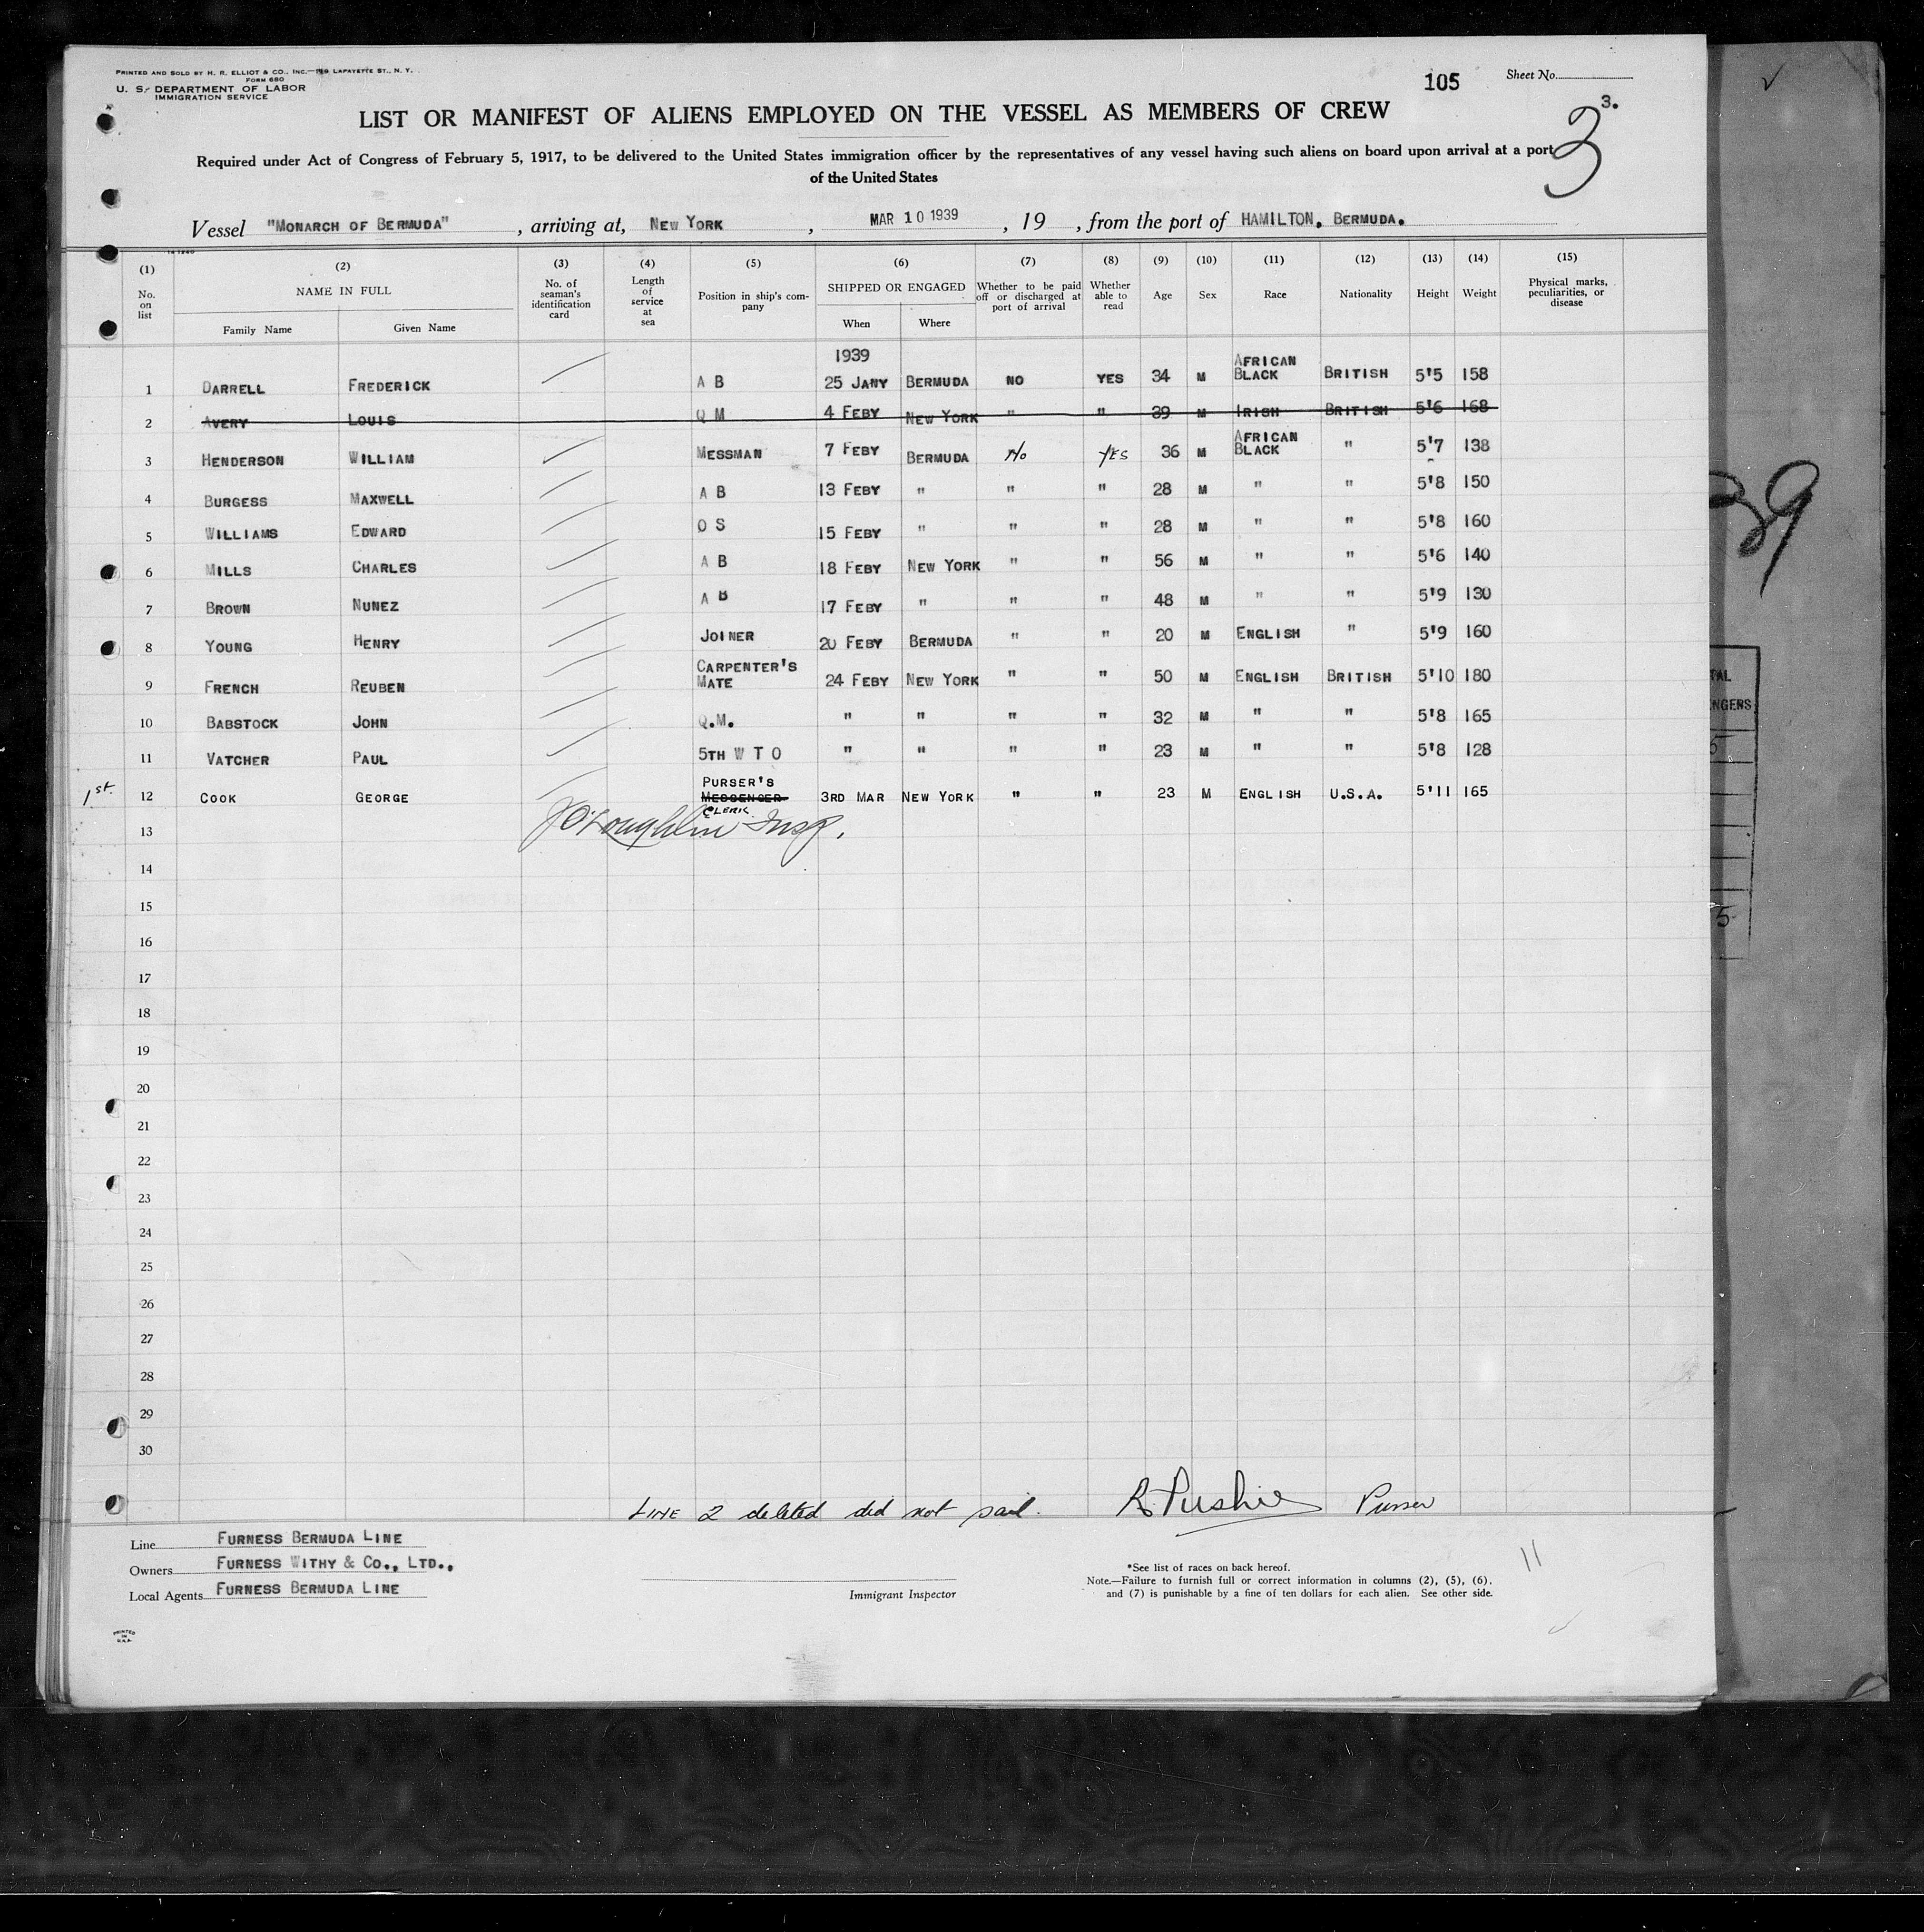 PRINTED AND SOLD BY H. R. ELLIOT & CO., INC.—LAFAYETTE ST., N. Y.
FORM 680
U. S. DEPARTMENT OF LABOR
IMMIGRATION SERVICE
105
Sheet No.
3.
3
LIST OR MANIFEST OF ALIENS EMPLOYED ON THE VESSEL AS MEMBERS OF CREW
Required under Act of Congress of February 5, 1917, to be delivered to the United States immigration officer by the representatives of any vessel having such aliens on board upon arrival at a port
of the United States
Vessel "MONARCH OF BERMUDA", arriving at, NEW YORK, MAR 10 1939, 19 , from the port of HAMILTON, BERMUDA.
(1) (2) (3) (4) (5) (6) (7) (8) (9) (10) (11) (12) (13) (14) (15)
No. on list
NAME IN FULL
Family Name Given Name
No. of seaman's identification card
Length of service at sea
Position in ship's company
SHIPPED OR ENGAGED
When Where
Whether to be paid off or discharged at port of arrival
Whether able to read
Age Sex Race Nationality Height Weight
Physical marks, peculiarities, or disease
1939
1 DARRELL FREDERICK A B 25 JANY BERMUDA NO YES 34 M AFRICAN BLACK BRITISH 5'5 158
2 AVERY LOUIS Q M 4 FEBY NEW YORK " " 39 M IRISH BRITISH 5'6 168
3 HENDERSON WILLIAM MESSMAN 7 FEBY BERMUDA No YES 36 M AFRICAN BLACK " 5'7 138
4 BURGESS MAXWELL A B 13 FEBY " " " 28 M " " 5'8 150
5 WILLIAMS EDWARD O S 15 FEBY " " " 28 M " " 5'8 160
6 MILLS CHARLES A B 18 FEBY NEW YORK " " 56 M " " 5'6 140
7 BROWN NUNEZ A B 17 FEBY " " " 48 M " " 5'9 130
8 YOUNG HENRY JOINER 20 FEBY BERMUDA " " 20 M ENGLISH " 5'9 160
9 FRENCH REUBEN CARPENTER'S MATE 24 FEBY NEW YORK " " 50 M ENGLISH BRITISH 5'10 180
10 BABSTOCK JOHN Q.M. " " " " 32 M " " 5'8 165
11 VATCHER PAUL 5TH W T O " " " " 23 M " " 5'8 128
1st. 12 COOK GEORGE PURSER'S MESSENGER CLERK 3RD MAR NEW YORK " " 23 M ENGLISH U.S.A. 5'11 165
J O'Loughlin Insp.
13
14
15
16
17
18
19
20
21
22
23
24
25
26
27
28
29
30
LINE 2 deleted did not sail. R Pushie Purser
Line FURNESS BERMUDA LINE
Owners FURNESS WITHY & CO., LTD.,
Local Agents FURNESS BERMUDA LINE
Immigrant Inspector
*See list of races on back hereof.
Note.—Failure to furnish full or correct information in columns (2), (5), (6),
and (7) is punishable by a fine of ten dollars for each alien. See other side.
11
PRINTED
IN
U.S.A.
39